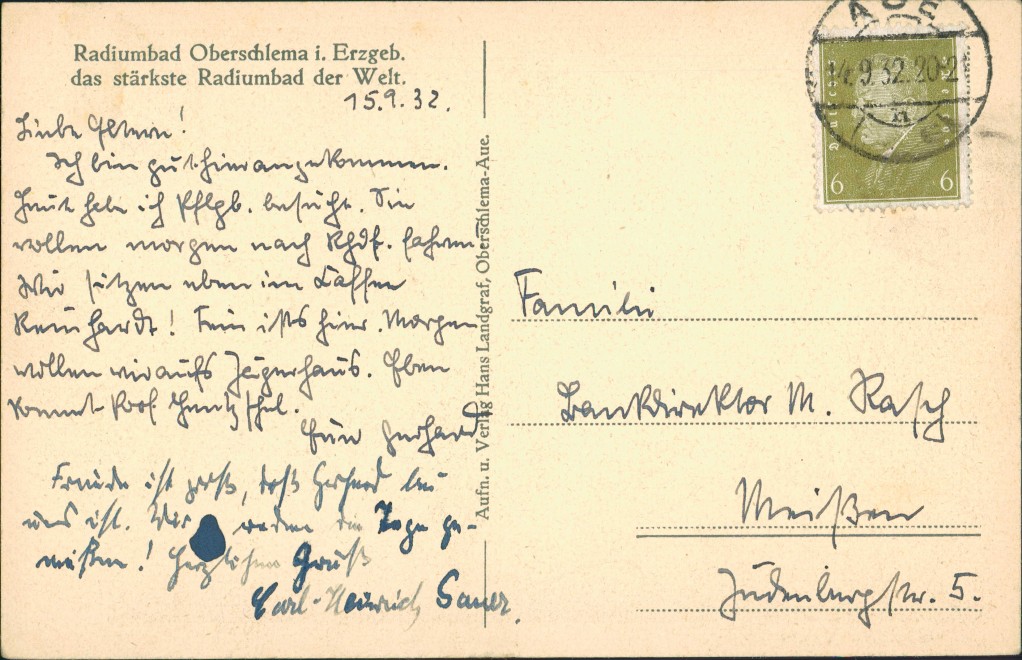 Radiumbad Oberschlema i. Erzgeb.
das stärkste Radiumbad der Welt.
15.9.32.
Liebe Eltern!
Ich bin gut hier angekommen.
Heute habe ich Pflgb. besucht. Sie
wollen morgen nach Rhdf. fahren
Wir sitzen eben im Caffee
Reinhardt! Fein ists hier. Morgen
wollen wir aufs Jägerhaus. Eben
kommt Prof. Hentzschel.
Euer Gerhard
Freude ist groß, daß Gerhard bei
uns ist. Wir werden die Tage ge-
nießen! Herzlichen Gruß
Carl-Heinrich Sauer.
Aufn. u. Verlag Hans Landgraf, Oberschlema-Aue.
AUE
14.9.32.20-21
6 6
Familie
Bankdirektor M. Rasch
Meißen
Judenburgstr. 5.